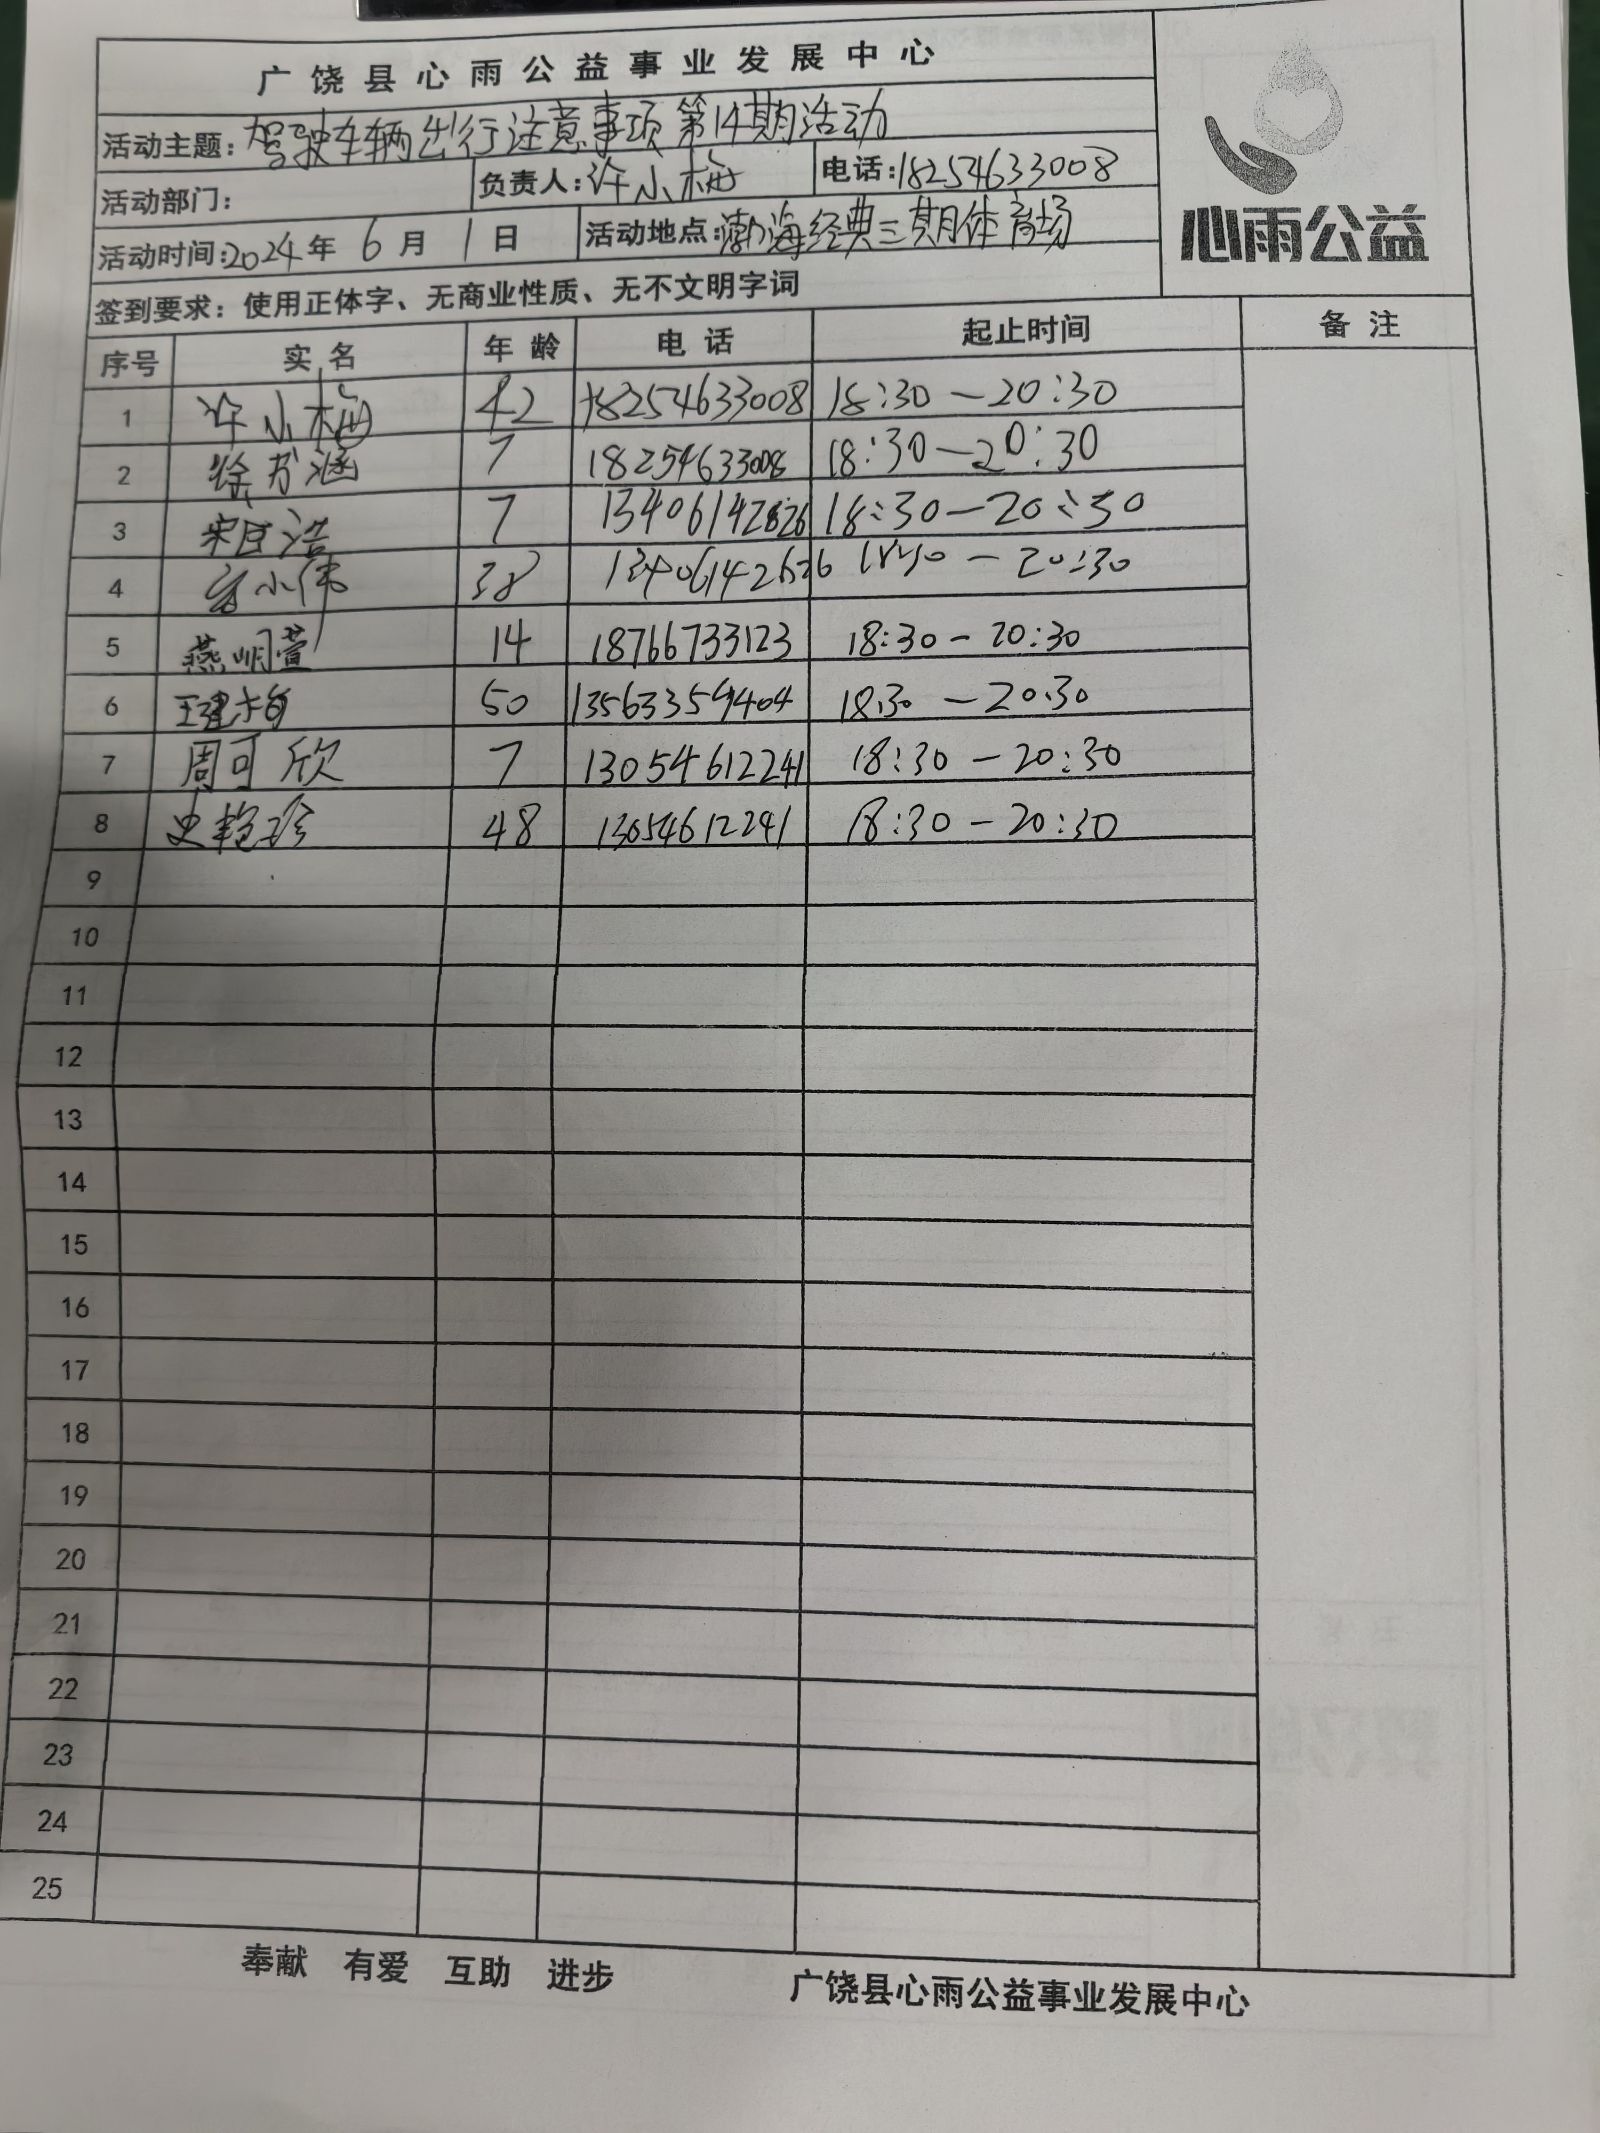 广饶县心雨公益事业发展中心
心雨公益
活动主题：驾驶车辆出行注意事项第14期活动
活动部门： 负责人：许小梅 电话：18254633008
活动时间：2024年6月1日 活动地点：渤海经典三期体育场
签到要求：使用正体字、无商业性质、无不文明字词
序号 实名 年龄 电话 起止时间 备注
1 许小梅 42 18254633008 18:30—20:30
2 徐 涵 7 18254633008 18:30—20:30
3 浩 7 18:30—20:30
4 小伟 38 —20:30
5 燕明萱 14 18766733123 18:30-20:30
6 王建 50 18:30—20:30
7 周可欣 7 13054612241 18:30—20:30
8 史艳珍 48 13054612241 18:30—20:30
9
10
11
12
13
14
15
16
17
18
19
20
21
22
23
24
25
奉献 有爱 互助 进步 广饶县心雨公益事业发展中心